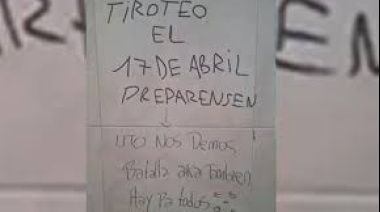 TIROTEO
EL
17 DE ABRIL
PREPARENSEN
NOS Demos
Batalla aca Tambien
Hay Pa todos